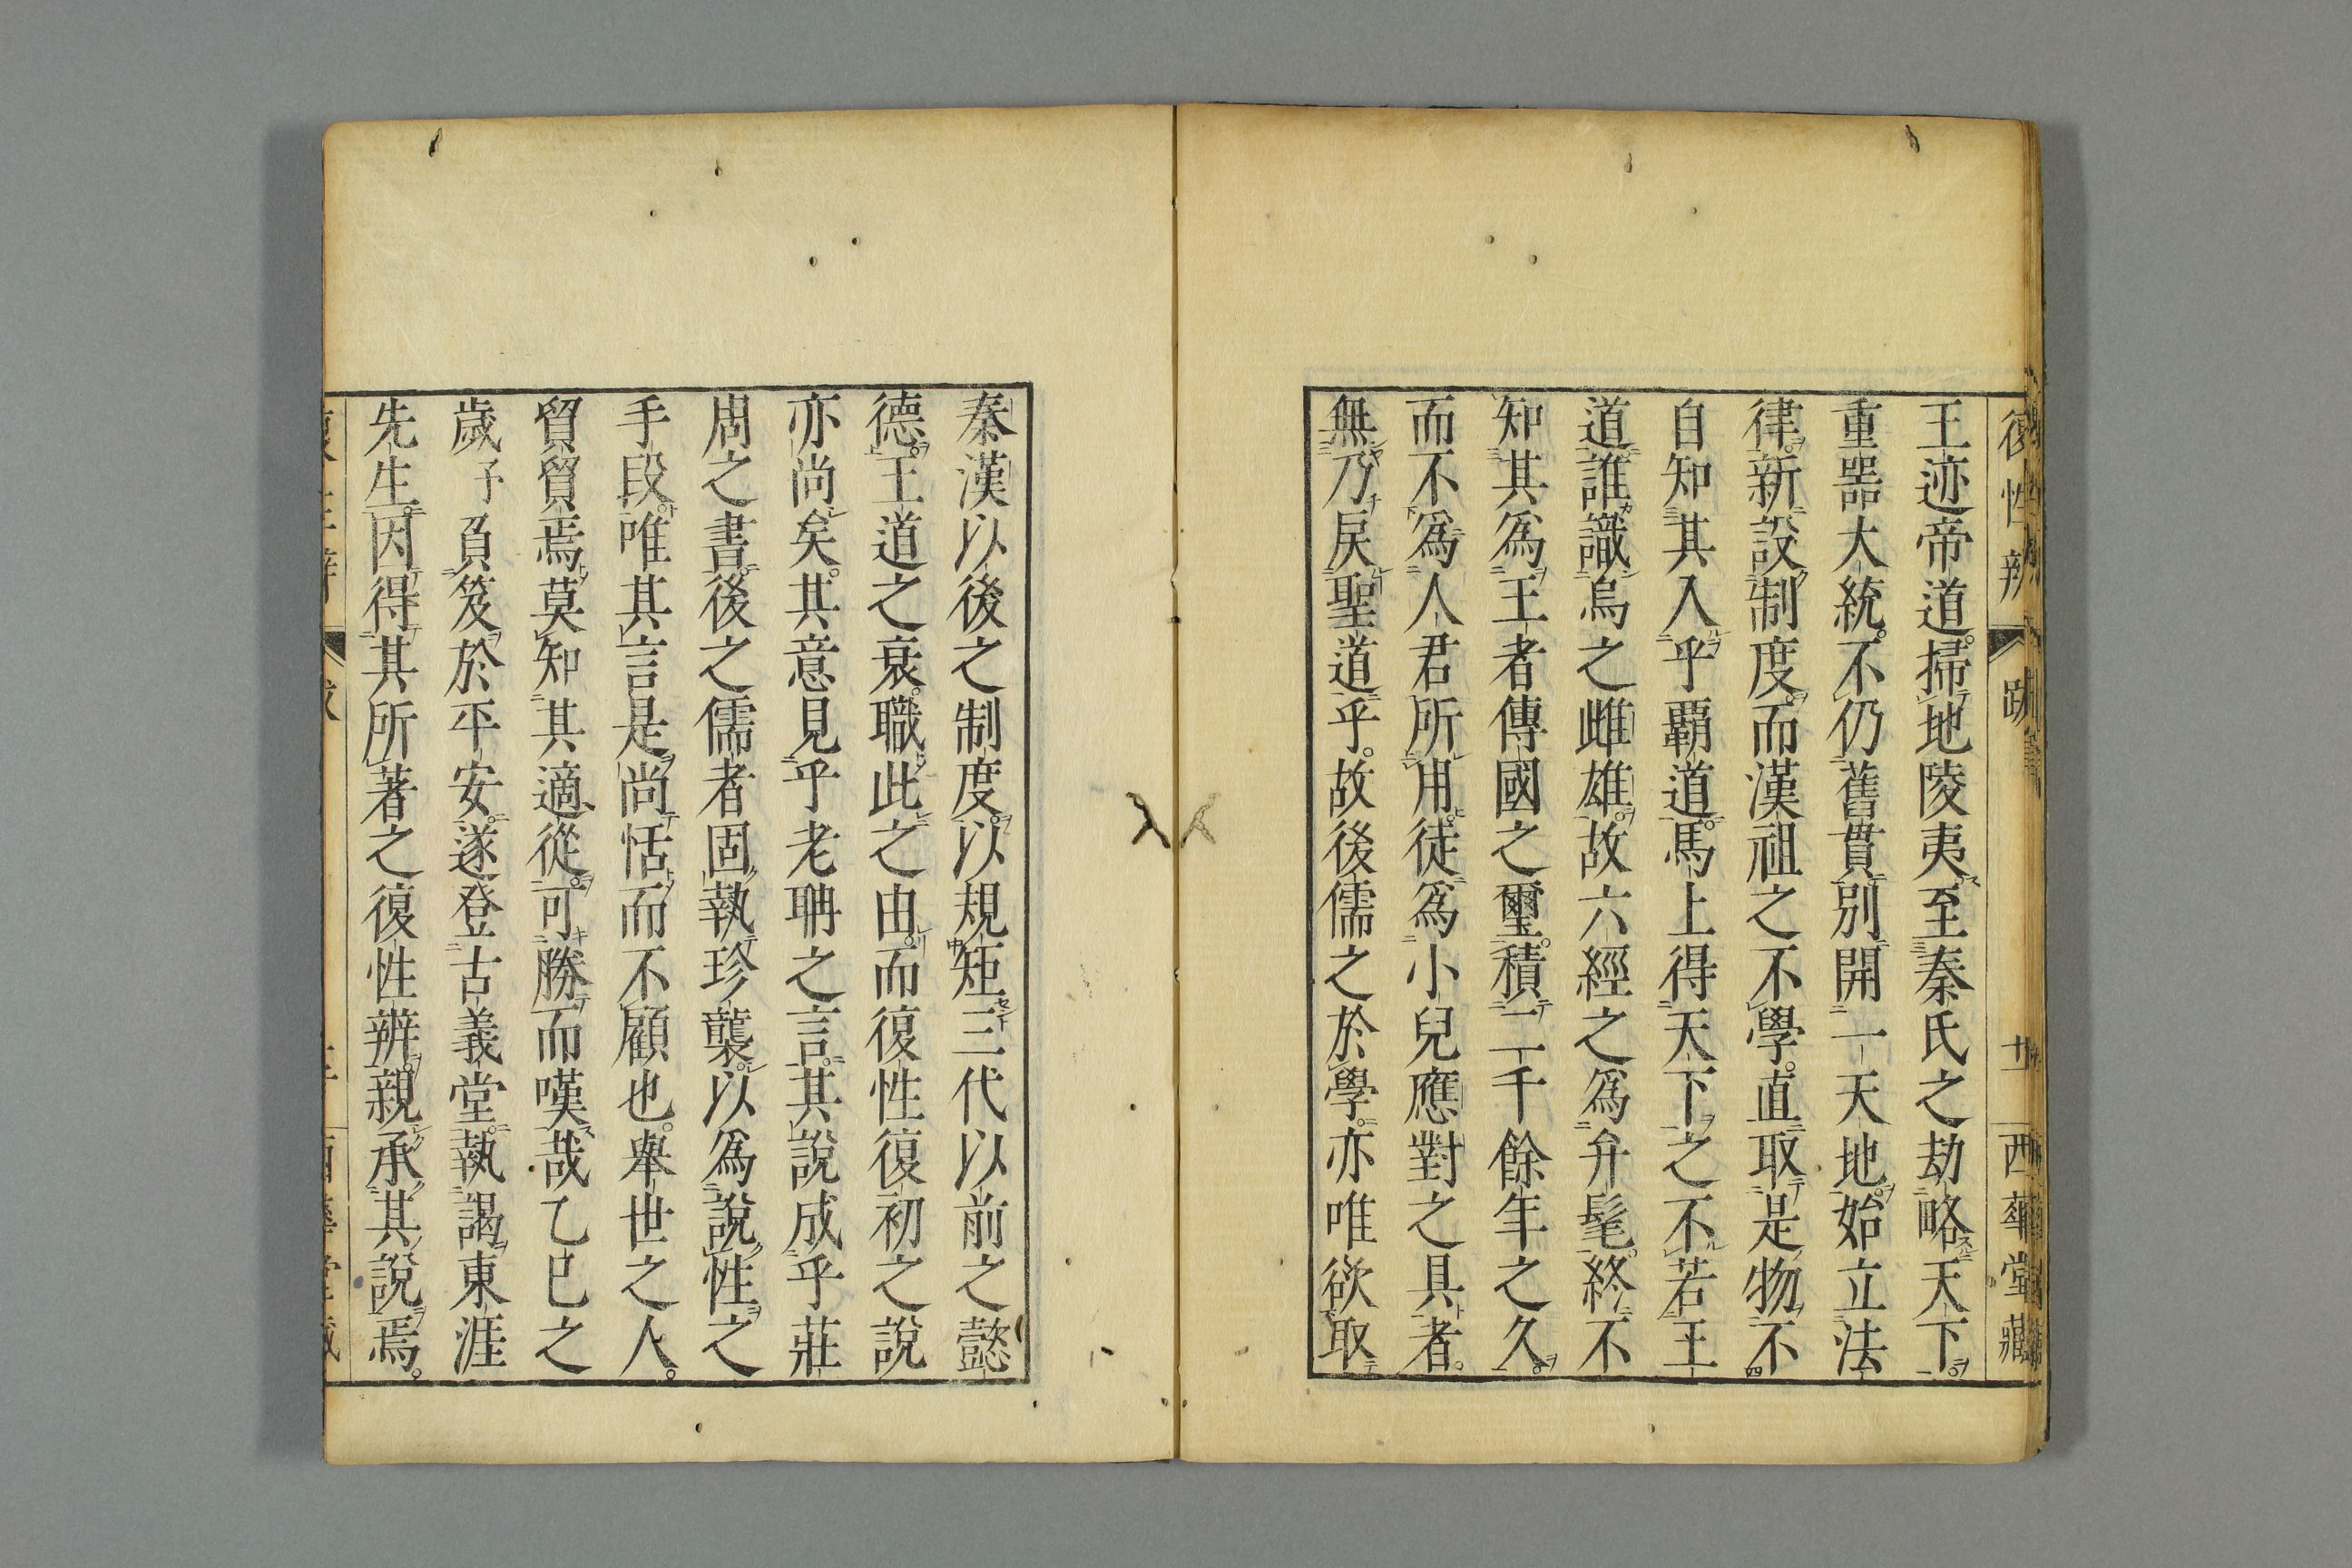 復性辨 跋 十一 西華堂藏
王迹帝道。掃地陵夷。至秦氏之劫略天下。
重器大統。不仍舊貫。別開一天地。始立法
律。新設制度。而漢祖之不學。直取是物。不
自知其入乎覇道。馬上得天下之不若王
道。誰識烏之雌雄。故六經之爲弁髦。終不
知其爲王者傳國之璽。積二千餘年之久。
而不爲人君所用。徒爲小兒應對之具者。
無乃戾聖道乎。故後儒之於學。亦唯欲取
秦漢以後之制度。以規矩三代以前之懿
德。王道之衰。職此之由。而復性復初之說
亦尚矣。其意見乎老聃之言。其說成乎莊
周之書。後之儒者固執珍襲。以爲說性之
手段。唯其言是尚恬而不顧也。舉世之人。
貿貿焉莫知其適從。可勝而嘆哉乙巳之
歲予負笈於平安。遂登古義堂。執謁東涯
先生。因得其所著之復性辨。親承其說焉。